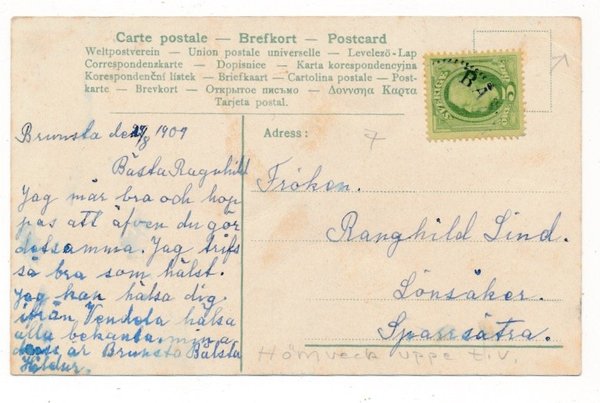 Carte postale — Brefkort — Postcard
Weltpostverein — Union postale universelle — Levelező-Lap
Correspondenzkarte — Dopisnice — Karta korespondencyjna
Korespondenční lístek — Briefkaart — Cartolina postale — Post-
karte — Brevkort — Открытое письмо — Δοννσηα Καρτα
Tarjeta postal.
SVERIGE
5
BÅ
Brunsta den 27/8 1909
Bästa Ragnhild
Jag mår bra och hop
pas att äfven du gör
detsamma. Jag trifs
så bra som hälst.
Jag kan hälsa dig
ifrån Vendela hälsa
alla bekanta. min a
dress är Brunsta Bålsta
Hildur.
Adress:
Fröken.
Ranghild Lind.
Lönsåker.
Sparrsätra.
Hörnveck uppe t.v.